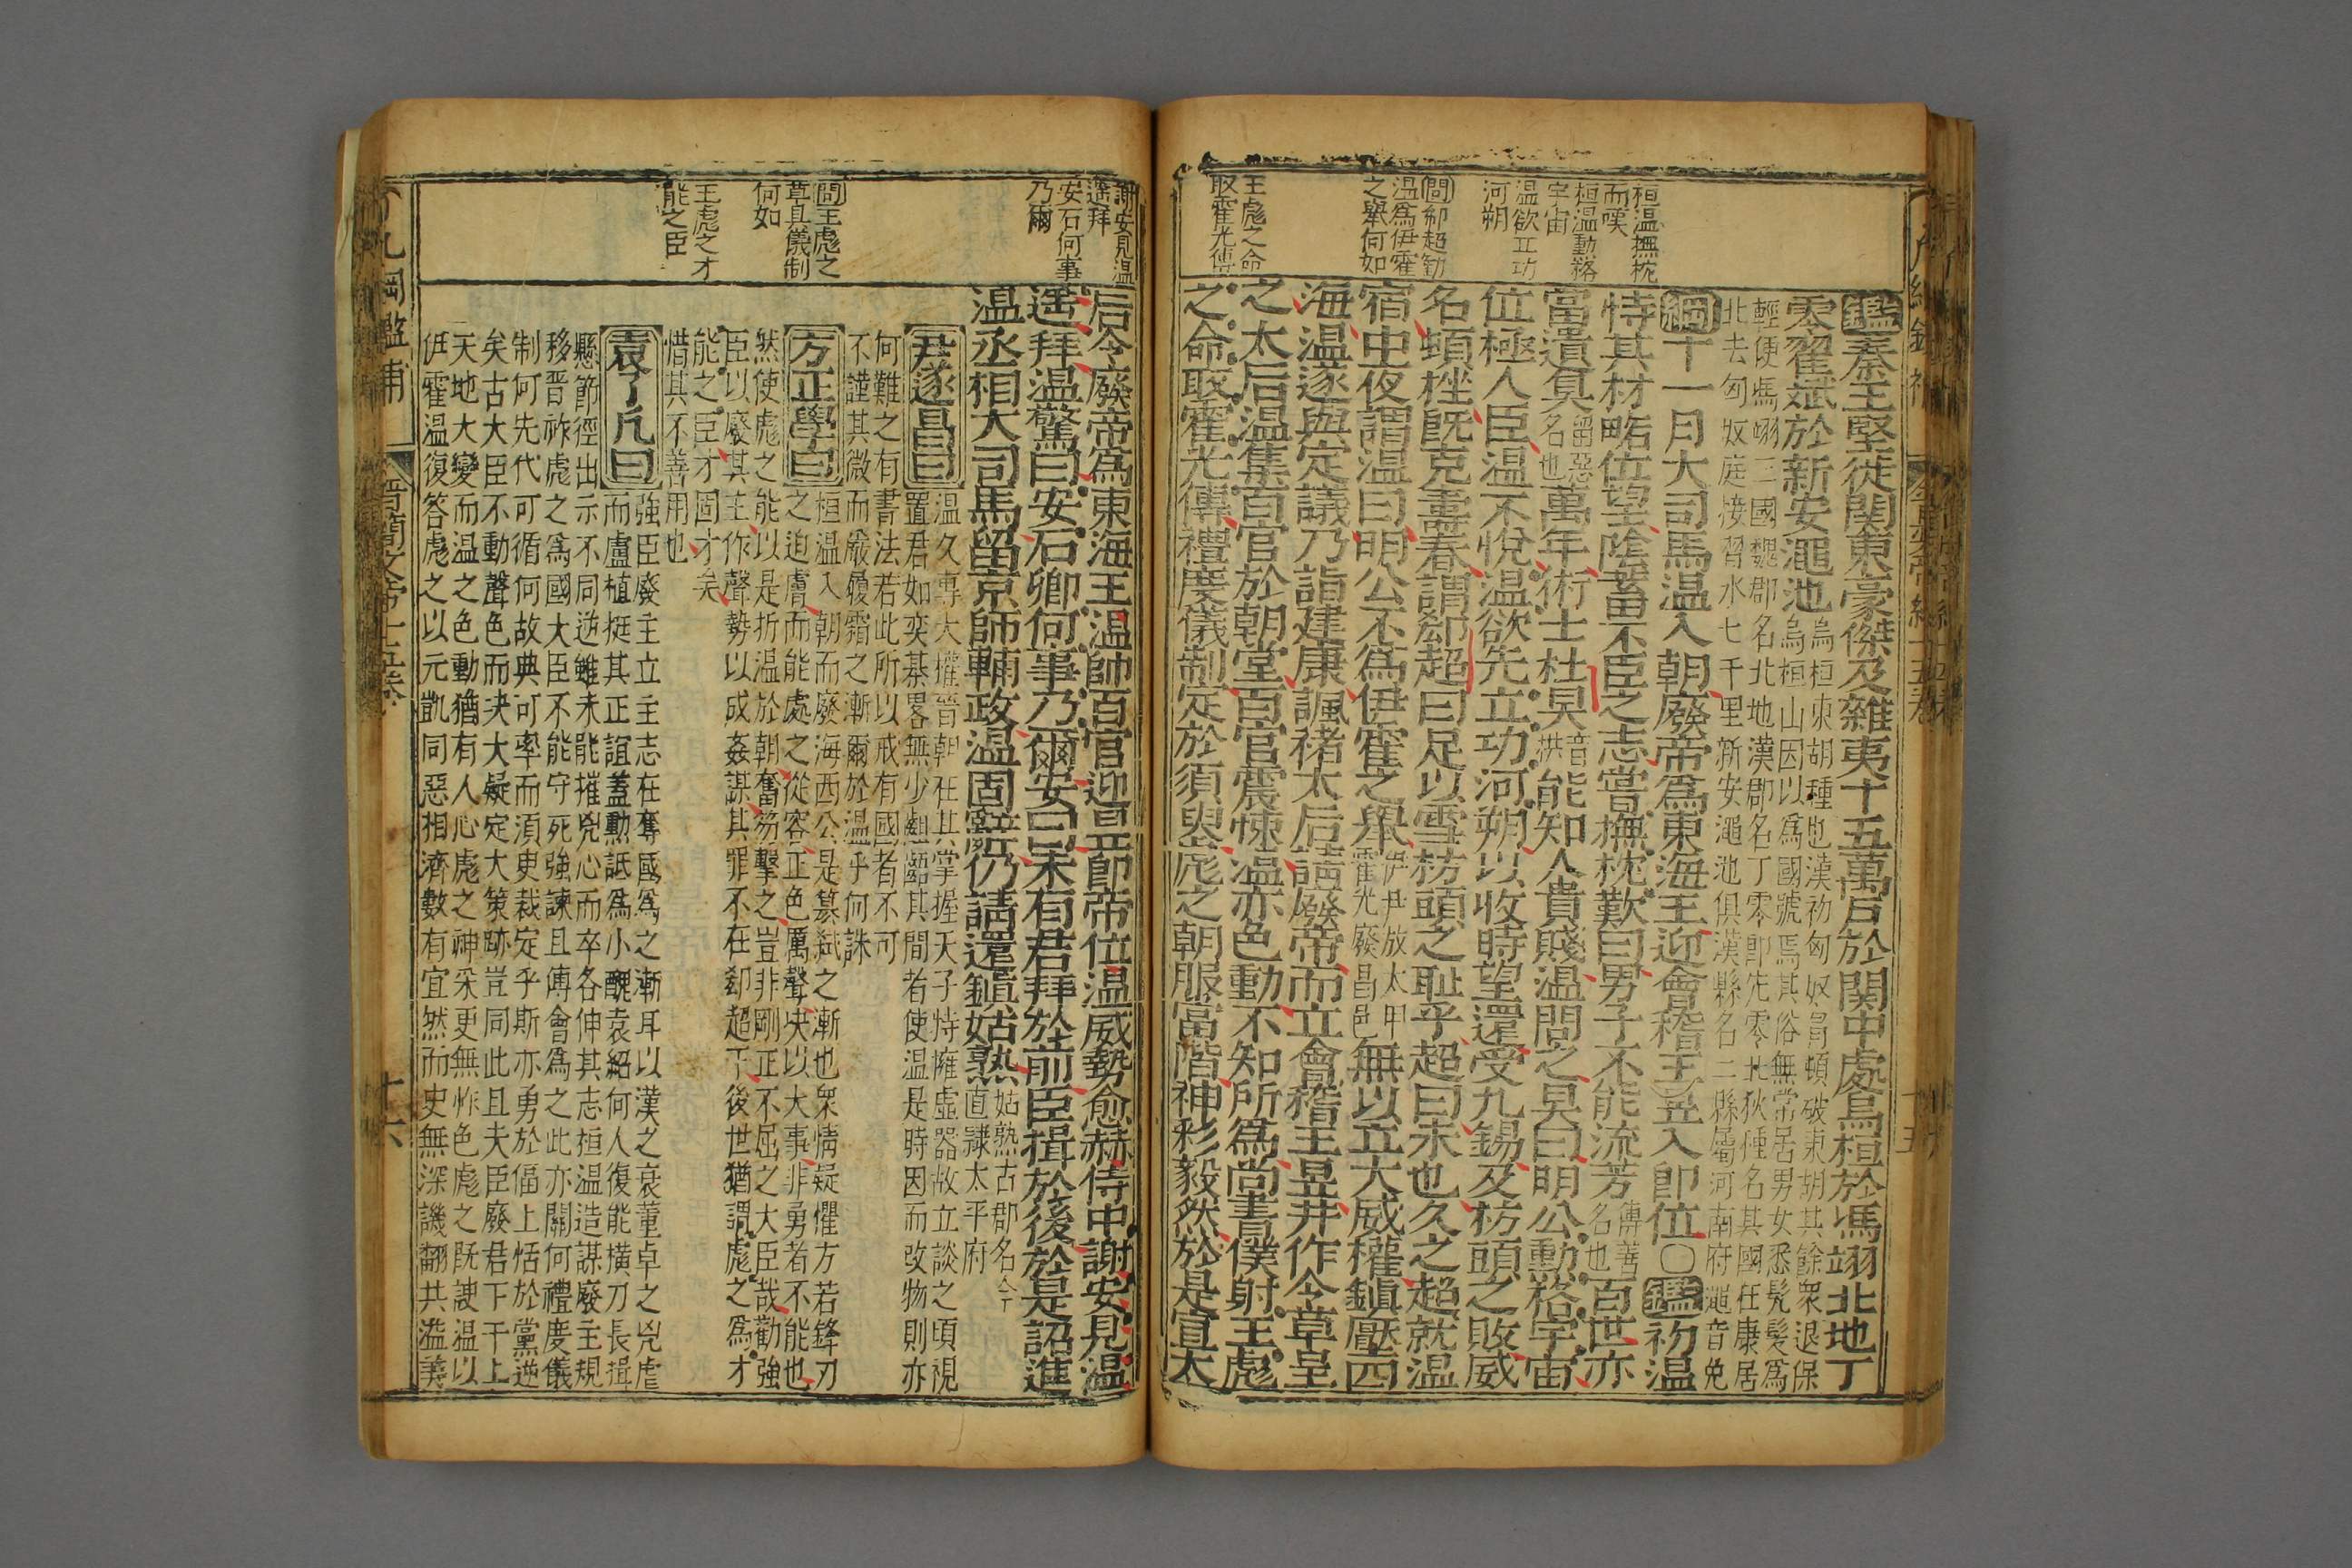 桓温撫枕
而嘆
桓温動格
宇宙
温欲立功
河朔
問郗超勸
温爲伊霍
之舉何如
王彪之命
取霍光傳
鑑秦王堅徙関東豪傑及雜夷十五萬戸於関中處烏桓於馮翊北地丁
零翟斌於新安澠池
烏桓東胡種也漢初匈奴冒頓破東胡其餘衆退保
烏桓山因以爲國號焉其俗無常居男女悉髠髮爲
輕便馮翊三國魏郡名北地漢郡名丁零即先零北狄種名其國在康居
北去匈奴庭接習水七千里新安澠池俱漢縣名二縣屬河南府澠音免
綱十一月大司馬温入朝廢帝爲東海王迎會稽王昱入即位〇鑑初温
恃其材畧位望隂蓄不臣之志嘗撫枕歎曰男子不能流芳
傳善
名也
百世亦
當遺臭
留惡
名也
萬年術士杜炅
音
拱
能知人貴賤温問之炅曰明公動格宇宙
位極人臣温不悅温欲先立功河朔以收時望還受九錫及枋頭之敗威
名頓挫旣克壽春謂郗超曰足以雪枋頭之耻乎超曰未也久之超就温
宿中夜謂温曰明公不爲伊霍之舉
伊尹放太甲
霍光廢昌邑
無以立大威權鎭壓四
海温遂與定議乃詣建康諷禇太后請廢帝而立會稽王昱并作令草呈
之太后温集百官於朝堂百官震悚温亦色動不知所爲尚書僕射王彪
之命取霍光傳禮度儀制定於須臾彪之朝服當階神彩毅然於是宣太
謝安見温
遥拜
安石何事
乃爾
問王彪之
草具儀制
何如
王彪之才
能之臣
后令廢帝爲東海王温帥百官迎昱即帝位温威勢愈赫侍中謝安見温
遥拜温驚曰安石卿何事乃爾安曰未有君拜於前臣揖於後於是詔進
温丞相大司馬留京師輔政温固辭仍請還鎭姑熟
姑熟古郡名今
直隷太平府
尹遂昌曰
温久專大權晉朝在其掌握天子恃擁虚器故立談之頃視
置君如奕碁畧無少齟齬其間者使温是時因而改物則亦
何難之有書法若此所以戒有國者不可
不謹其微而嚴履霜之漸爾於温乎何誅
方正學曰
桓温入朝而廢海西公是簒弒之漸也衆情疑懼方若鋒刃
之迫膚而能處之從容正色厲聲决以大事非勇者不能也
然使彪之能以是折温於朝奮笏擊之豈非剛正不屈之大臣哉勸強
臣以廢其主作聲勢以成姦謀其罪不在郗超下後世猶謂彪之爲才
能之臣才固才矣
惜其不善用也
袁了凡曰
強臣廢主立主志在奪國爲之漸耳以漢之衰董卓之兇虐
而盧植挺其正誼蓋勳詆爲小醜袁紹何人復能横刀長揖
懸節徑出示不同逆雖未能摧兇心而卒各伸其志桓温造謀廢主規
移晉祚彪之爲國大臣不能守死強諫且傅會爲之此亦關何禮度儀
制何先代可循何故典可率而須臾裁定乎斯亦勇於傴上恬於黨逆
矣古大臣不動聲色而决大疑定大策跡豈同此且夫臣廢君下干上
天地大變而温之色動猶有人心彪之神采更無怍色彪之既諛温以
伊霍温復答彪之以元凱同惡相濟數有宜然而史無深譏翻共溢美
晋簡文帝十五卷
十六